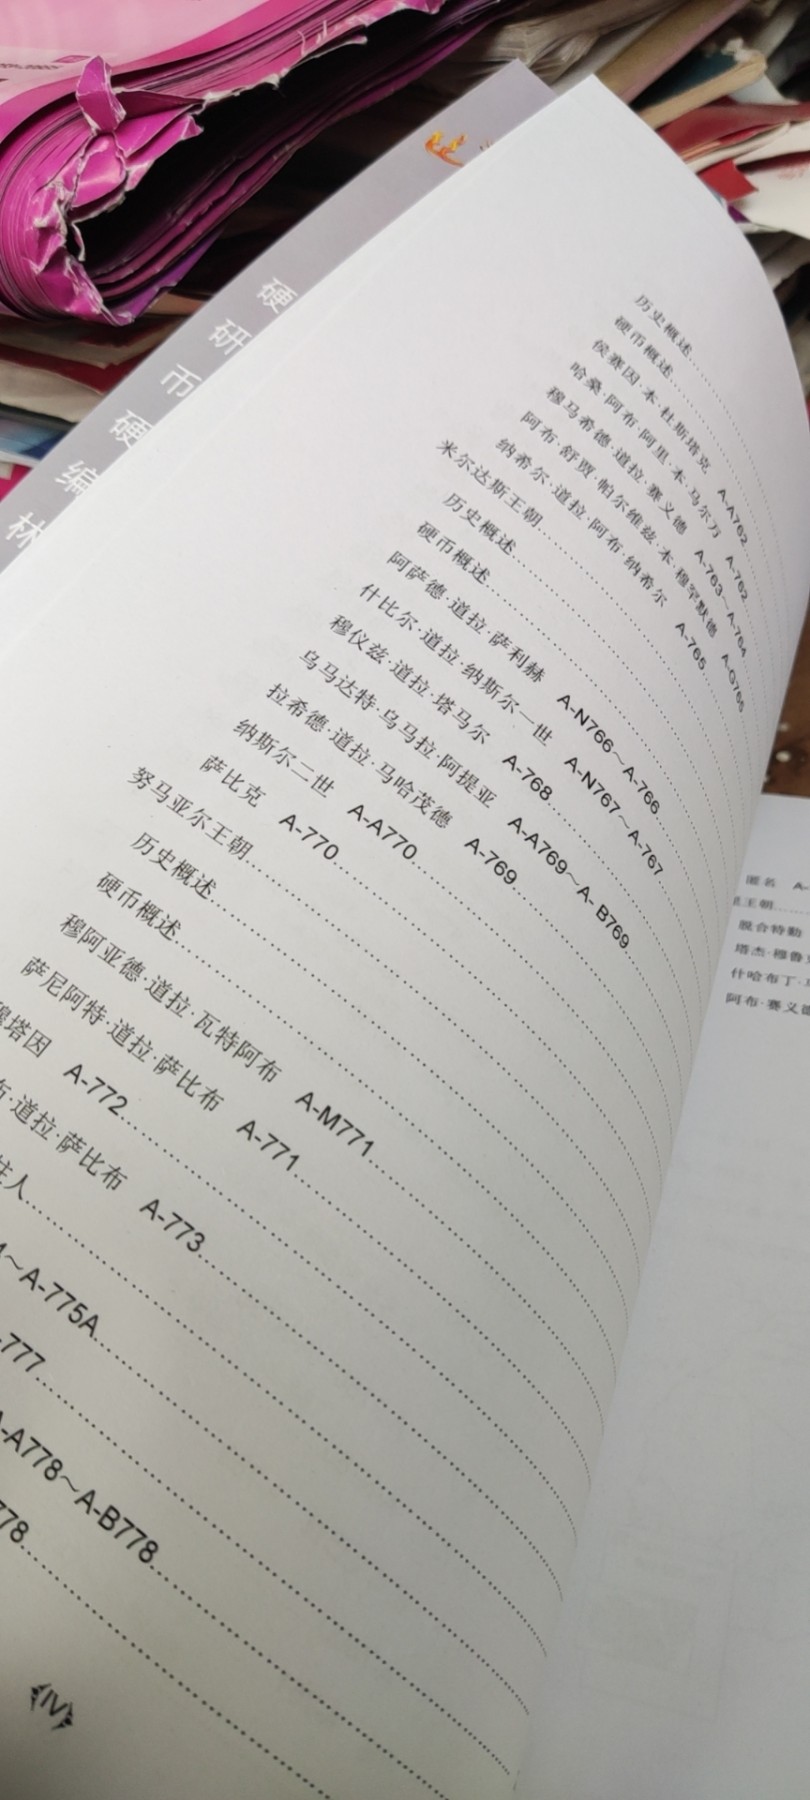 硬
研
币
硬
编
林
历史概述
硬币概述
侯赛因·本·杜斯塔克 A-A762
哈桑·阿布·阿里·本·马尔万 A-762
穆马希德·道拉·赛义德 A-763～A-764
阿布·舒贾·帕尔维兹·本·穆罕默德 A-G765
纳希尔·道拉·阿布·纳希尔 A-765
米尔达斯王朝
历史概述
硬币概述
阿萨德·道拉·萨利赫 A-N766～A-766
什比尔·道拉·纳斯尔一世 A-N767～A-767
穆仪兹·道拉·塔马尔 A-768
乌马达特·乌马拉·阿提亚 A-A769～A-B769
拉希德·道拉·马哈茂德 A-769
纳斯尔二世 A-A770
萨比克 A-770
努马亚尔王朝
历史概述
硬币概述
穆阿亚德·道拉·瓦特阿布 A-M771
萨尼阿特·道拉·萨比布 A-771
穆塔因 A-772
布·道拉·萨比布 A-773
主人
～A-775A
777
A778～A-B778
778
IV
匿名
王朝
脱合特勒
塔杰·穆鲁克
什哈布丁
阿布·赛义德